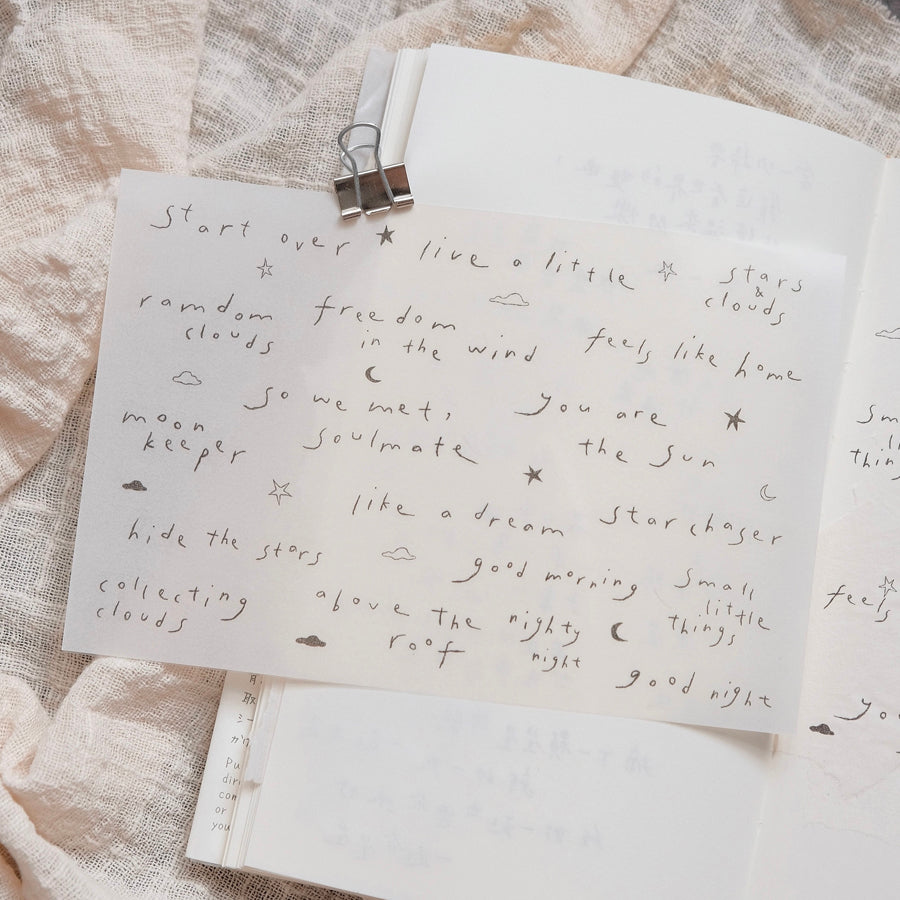 start over
live a little
stars
&
clouds
ramdom
clouds
freedom
in the wind
feels like home
so we met,
you are
moon
keeper
soulmate
the sun
like a dream
star chaser
hide the stars
good morning
small
little
things
collecting
clouds
above the
roof
nighty
night
good night
feels
取
シー
Pu
dir
com
or
you